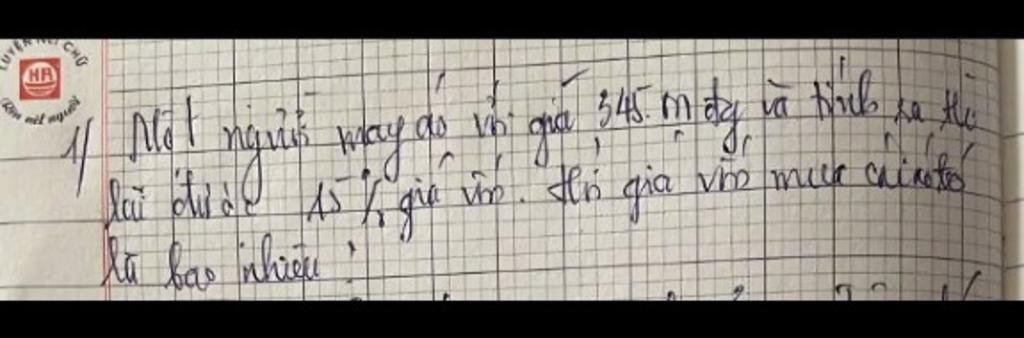 LUYỆN NÉT CHỮ
HA
Rèn nết người
1/ Một người may áo với giá 345. đg và tính ra thì
lãi được 15 % giá vốn. Hỏi giá vốn mua cái áo đó
là bao nhiêu